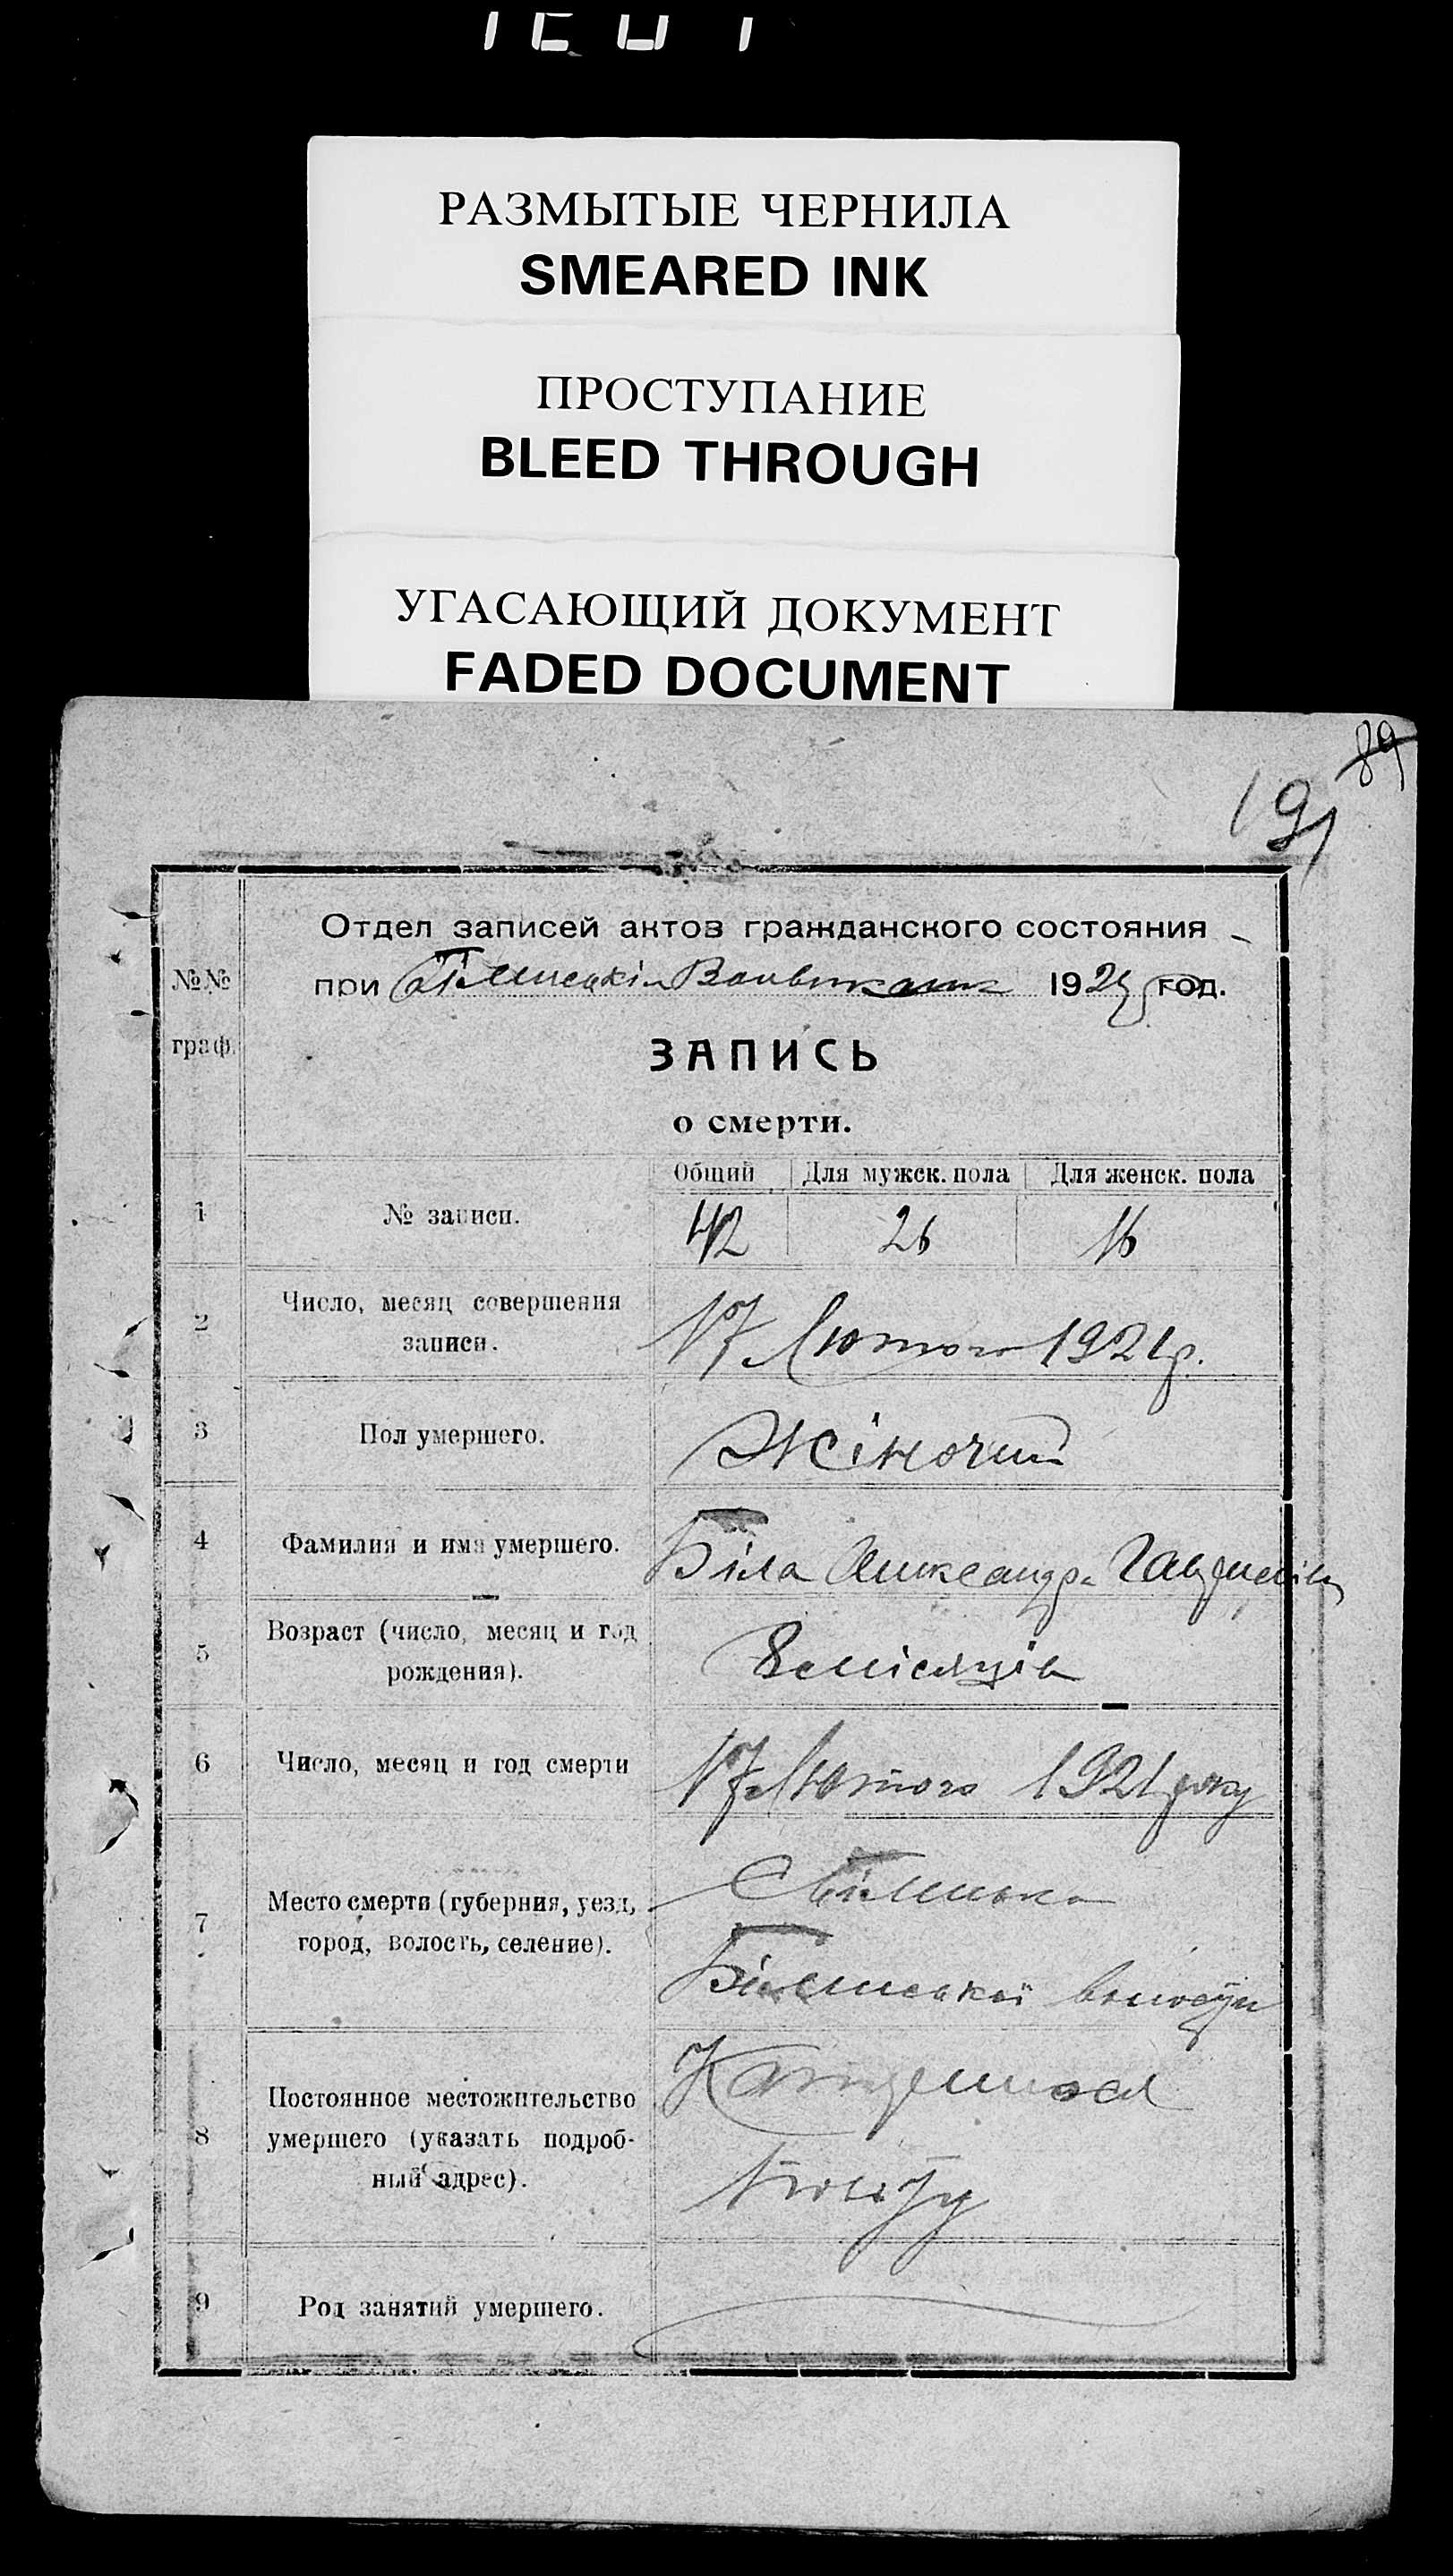 РАЗМЫТЫЕ ЧЕРНИЛА
SMEARED INK
ПРОСТУПАНИЕ
BLEED THROUGH
УГАСАЮЩИЙ ДОКУМЕНТ
FADED DOCUMENT
89
191
Отдел записей актов гражданского состояния
№№ при 1921 год.
граф.
ЗАПИСЬ
о смерти.
Общий Для мужск. пола Для женск. пола
1 № записи. 42 26 16
2 Число, месяц совершения
записи. 17 Лютого 1921 р.
3 Пол умершего. Жіночий
4 Фамилия и имя умершего. Біла Александра
5 Возраст (число, месяц и год
рождения). 8 місяців
6 Число, месяц и год смерти 17 Лютого 1921 року
7 Место смерти (губерния, уезд,
город, волость, селение).
8 Постоянное местожительство
умершего (указать подроб-
ный адрес).
9 Род занятий умершего.